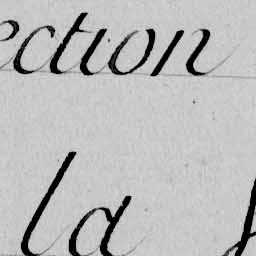 ection
la